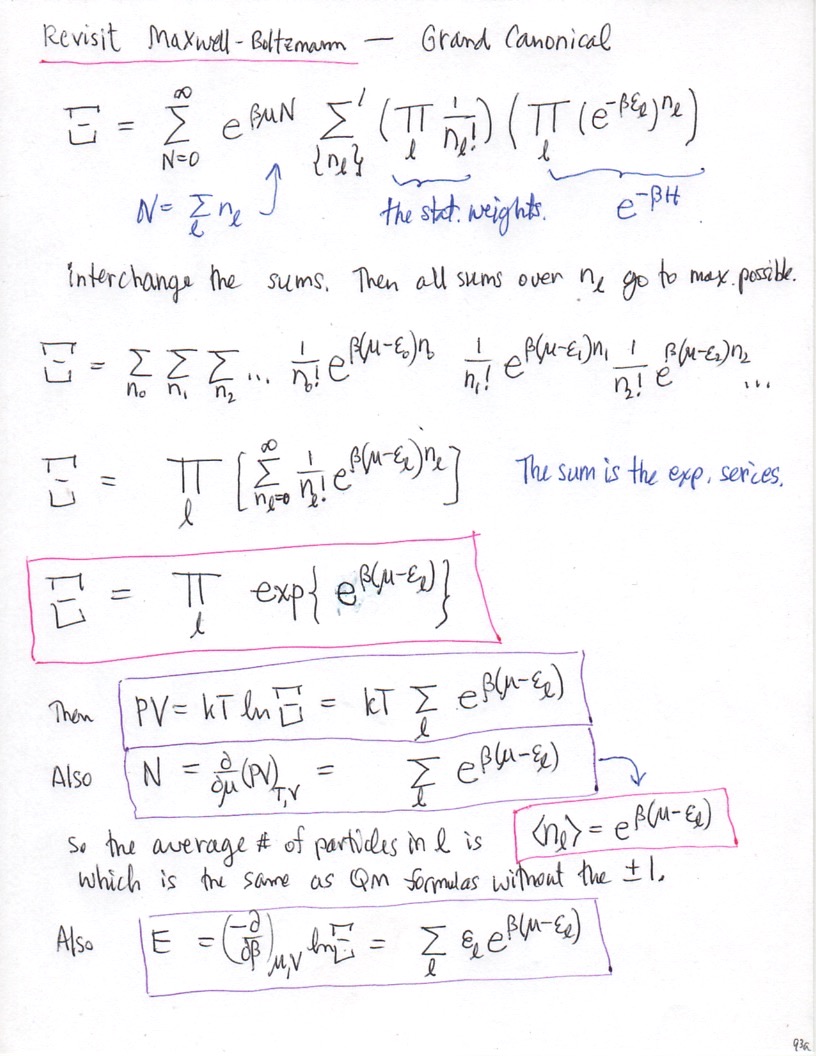 Revisit Maxwell-Boltzmann — Grand Canonical
Ξ = ∑_{N=0}^{∞} e^{βμN} ∑'_{{n_ℓ}} (∏_ℓ 1/n_ℓ!) (∏_ℓ (e^{-βε_ℓ})^{n_ℓ})
N = ∑_ℓ n_ℓ the stat. weights. e^{-βH}
interchange the sums. Then all sums over n_ℓ go to max. possible.
Ξ = ∑_{n_0} ∑_{n_1} ∑_{n_2} ... 1/n_0! e^{β(μ-ε_0)n_0} 1/n_1! e^{β(μ-ε_1)n_1} 1/n_2! e^{β(μ-ε_2)n_2} ...
Ξ = ∏_ℓ [∑_{n_ℓ=0}^{∞} 1/n_ℓ! e^{β(μ-ε_ℓ)n_ℓ}] The sum is the exp. series.
Ξ = ∏_ℓ exp{e^{β(μ-ε_ℓ)}}
Then PV = kT ln Ξ = kT ∑_ℓ e^{β(μ-ε_ℓ)}
Also N = ∂/∂μ (PV)_{T,V} = ∑_ℓ e^{β(μ-ε_ℓ)}
So the average # of particles in ℓ is ⟨n_ℓ⟩ = e^{β(μ-ε_ℓ)}
which is the same as QM formulas without the ±1.
Also E = (-∂/∂β)_{μ,V} ln Ξ = ∑_ℓ ε_ℓ e^{β(μ-ε_ℓ)}
93a